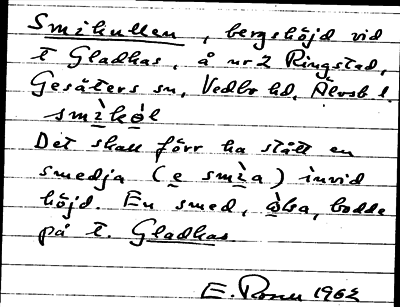 Smihullen, bergshöjd vid
t Gladhas, å nr 2 Ringstad,
Gesäters sn, Vedbo hd, Älvsb l.
smìkòl
Det skall förr ha stått en
smedja (e smìa) invid
höjd. En smed, bodde
på t. Gladhas
E. 1962